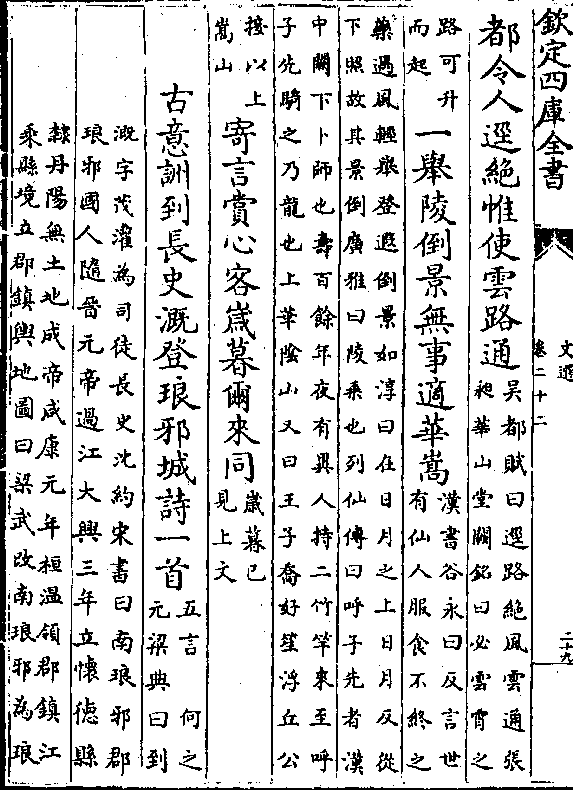 欽定四庫全書
文選
卷二十二
二十九
都令人逕絶惟使雲路通
吳都賦曰逕路絶風雲通張
昶華山堂闕銘曰必雲霄之
路可升
而起
一舉陵倒景無事適華嵩
漢書谷永曰反言世
有仙人服食不終之
藥遇風輕舉登遐倒景如淳曰在日月之上日月反從
下照故其景倒廣雅曰陵乘也列仙傳曰呼子先者漢
中關下卜師也壽百餘年夜有異人持二竹竿來至呼
子先騎之乃龍也上華陰山又曰王子喬好笙浮丘公
接以上
嵩山
寄言賞心客歳暮爾來同
歲暮已
見上文
古意詶到長史溉登琅邪城詩一首
五言 何之
元梁典曰到
溉字茂灌為司徒長史沈約宋書曰南琅邪郡
琅邪國人隨晉元帝過江大興三年立懷德縣
隸丹陽無土地成帝咸康元年桓温領郡鎮江
乘縣境立郡鎮輿地圖曰梁武改南琅邪為琅